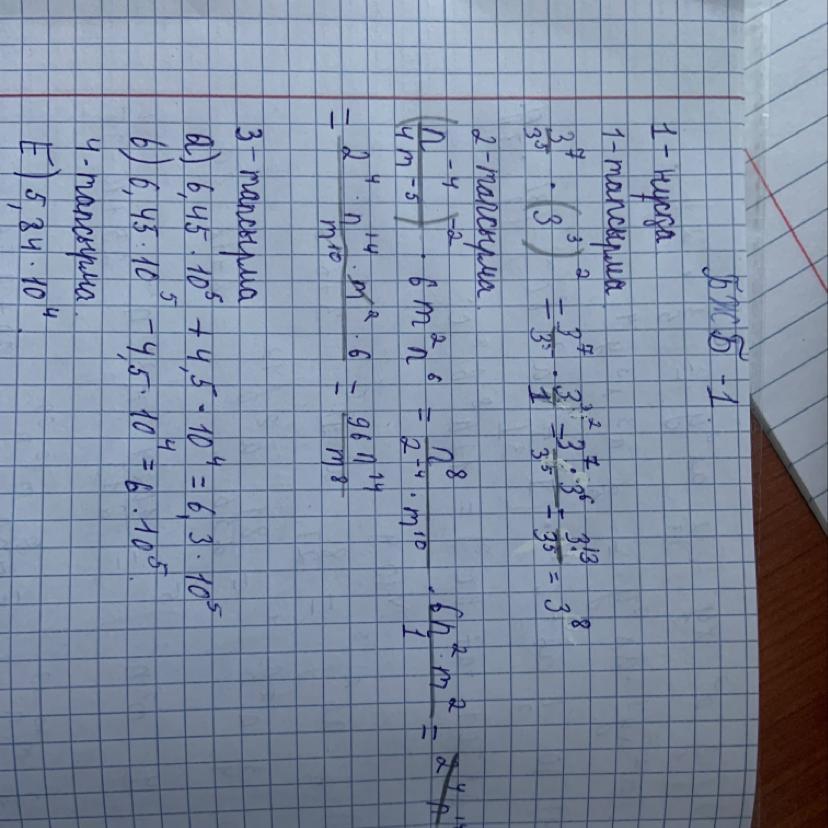 БЖБ-1
1-нұсқа
1-тапсырма
3⁷/3⁵ · (3³)² = 3⁷/3⁵ · 3³·²/1 = 3⁷·3⁶/3⁵ = 3¹³/3⁵ = 3⁸
2-тапсырма
(n⁻⁴/4m⁻⁵)⁻² · 6m²n⁶ = n⁸/2⁻⁴·m¹⁰ · 6n²·m²/1 =
= 2⁴·n¹⁴·m²·6/m¹⁰ = 96n¹⁴/m⁸
3-тапсырма
а) 6,45·10⁵ + 4,5·10⁴ = 6,3·10⁵
б) 6,45·10⁵ - 4,5·10⁴ = 6·10⁵
4-тапсырма
E) 5,84·10⁴